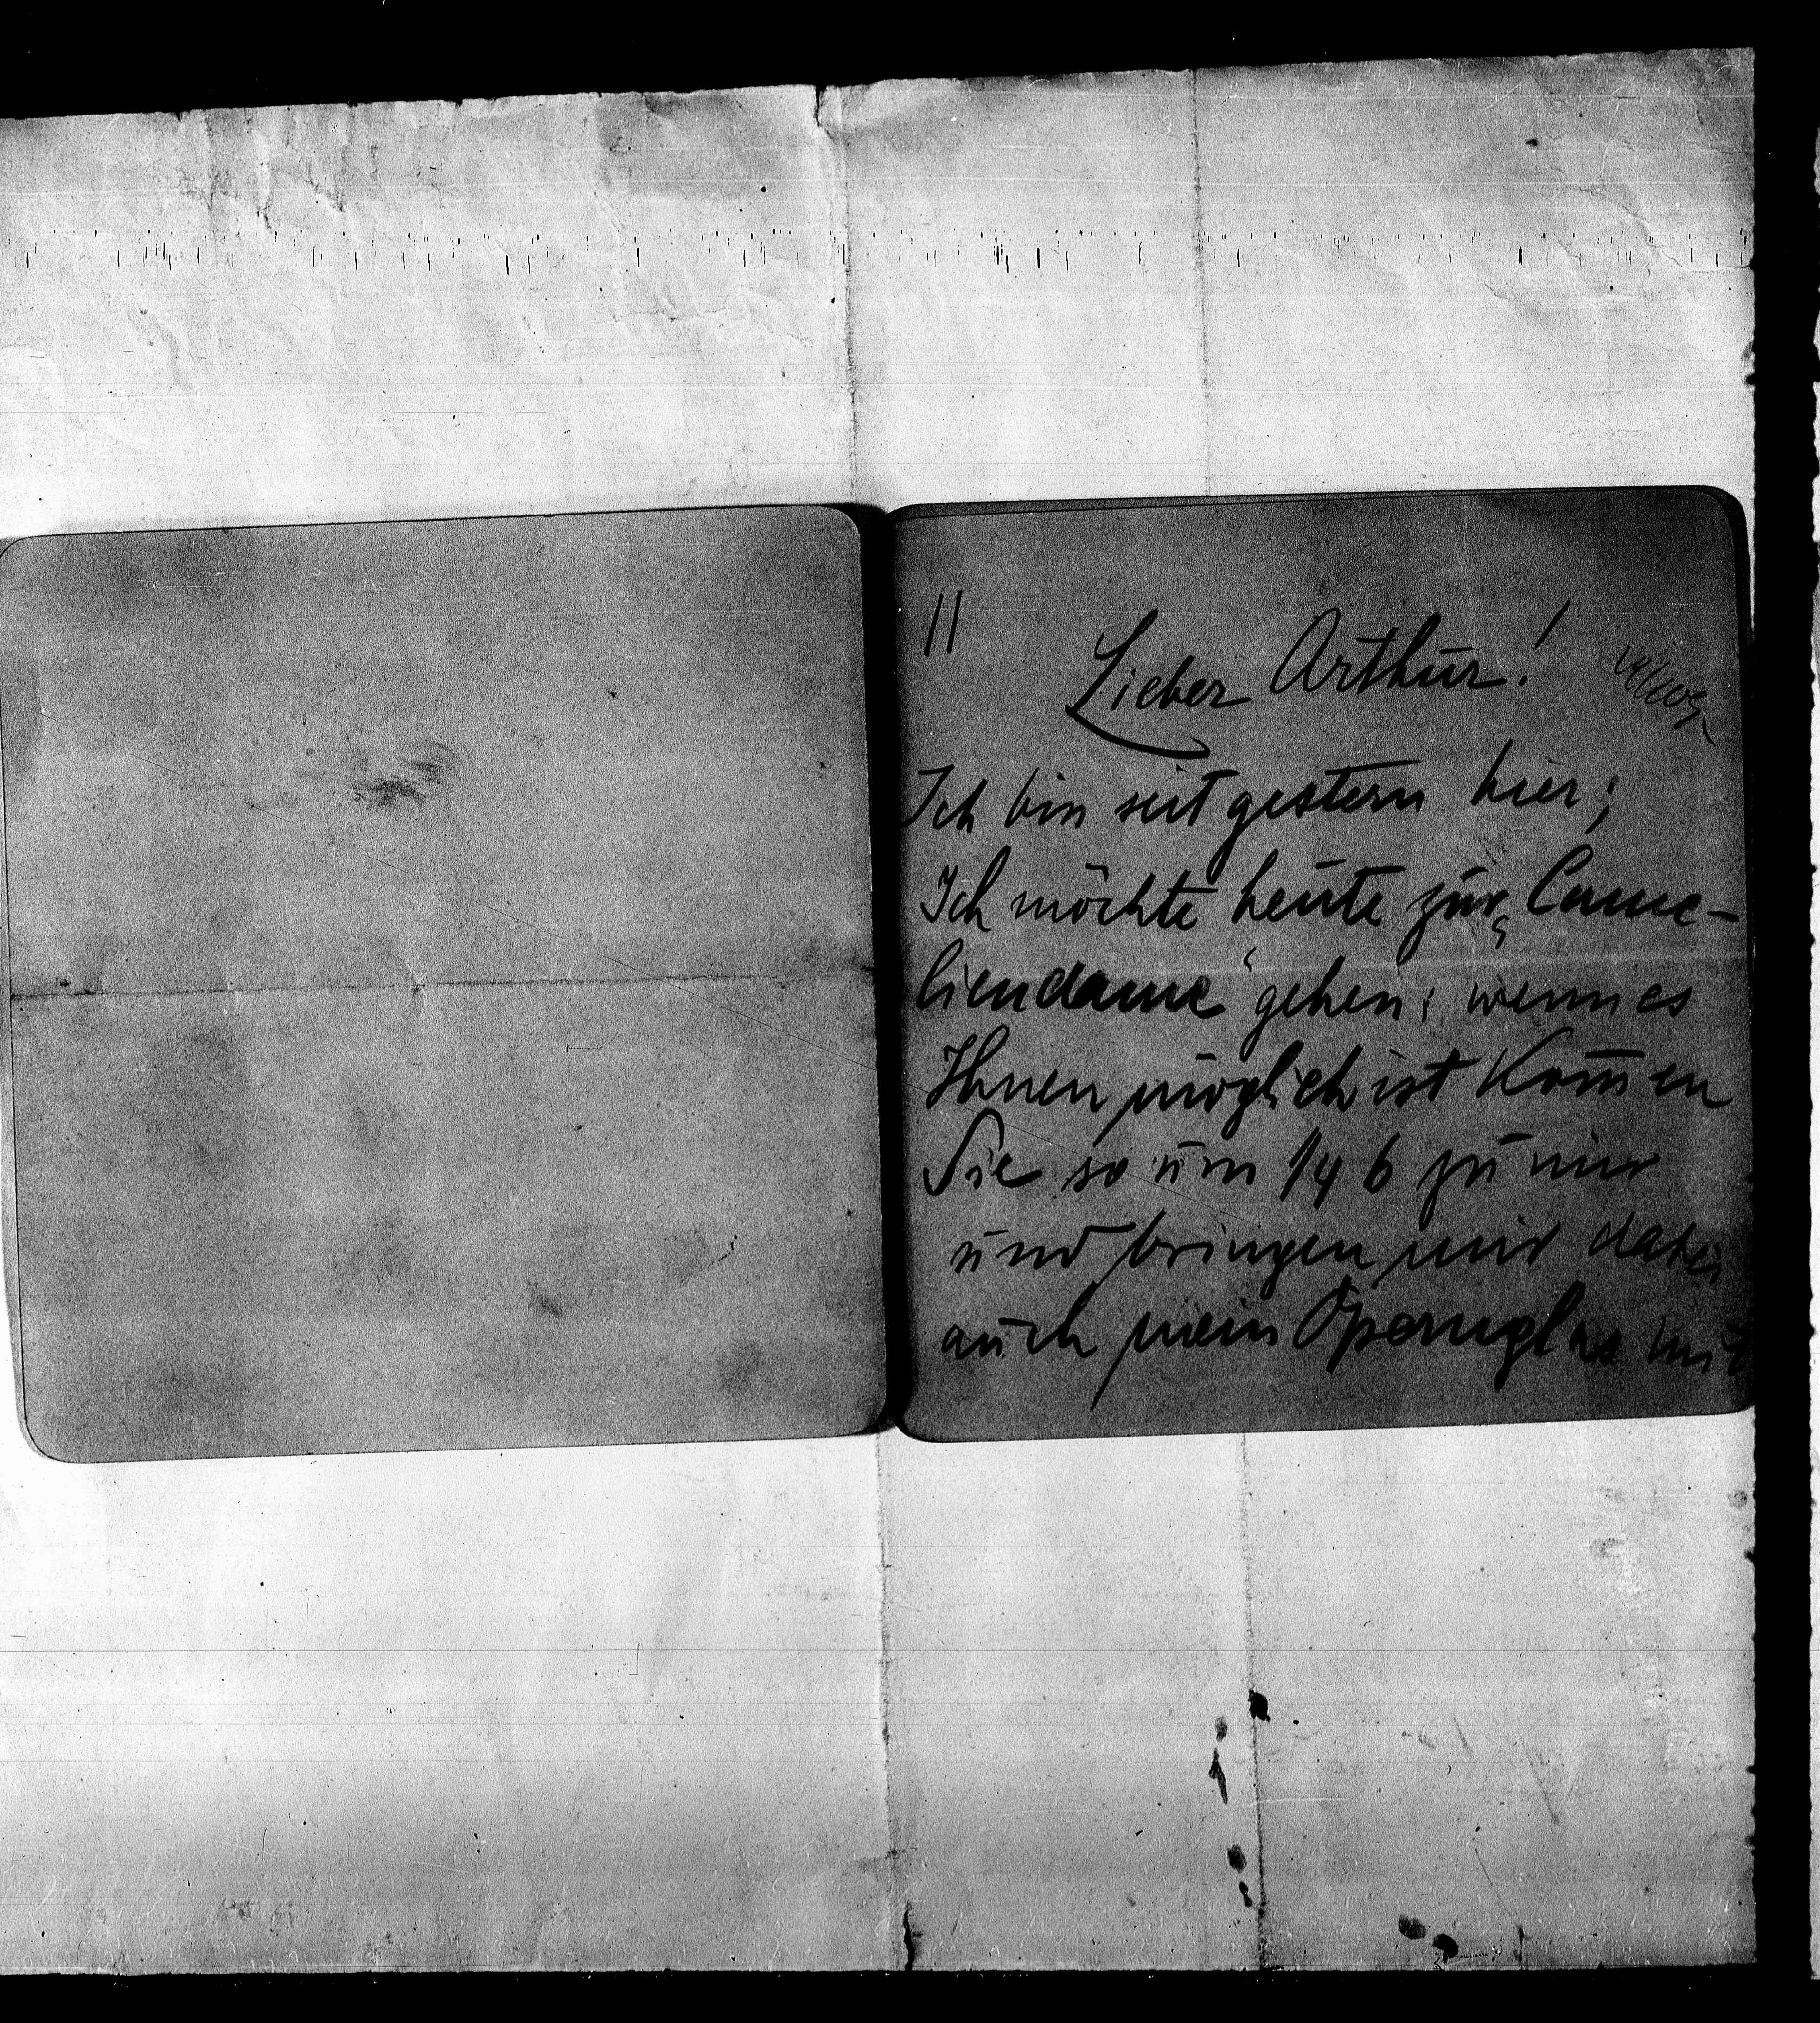 11
Lieber Arthur!
Ich bin seit gestern hier;
Ich möchte heute zur „Came-
liendame“ gehen; wenn es
Ihnen möglich ist Kom̄en
Sie so um 1/4 6 zu mir
und bringen mir dabei
auch mein Opernglas mit